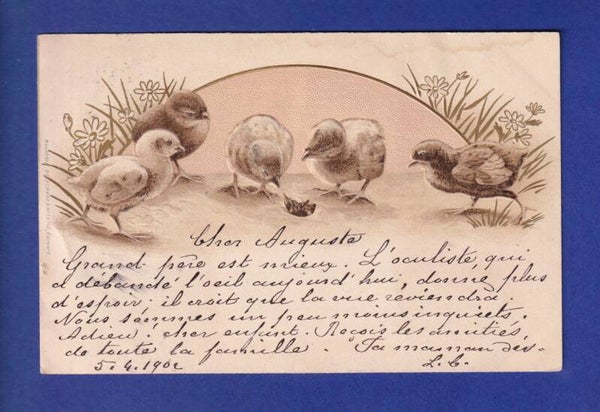 Cher Auguste
Grand père est mieux. L'oculiste, qui
a débandé l'oeil aujourd'hui, donne plus
d'espoir: il croit que la vue reviendra.
Nous sommes un peu moins inquiets.
Adieu, cher enfant. Reçois les amitiés,
de toute la famille. Ta maman
5. 4. 1902 L. C.